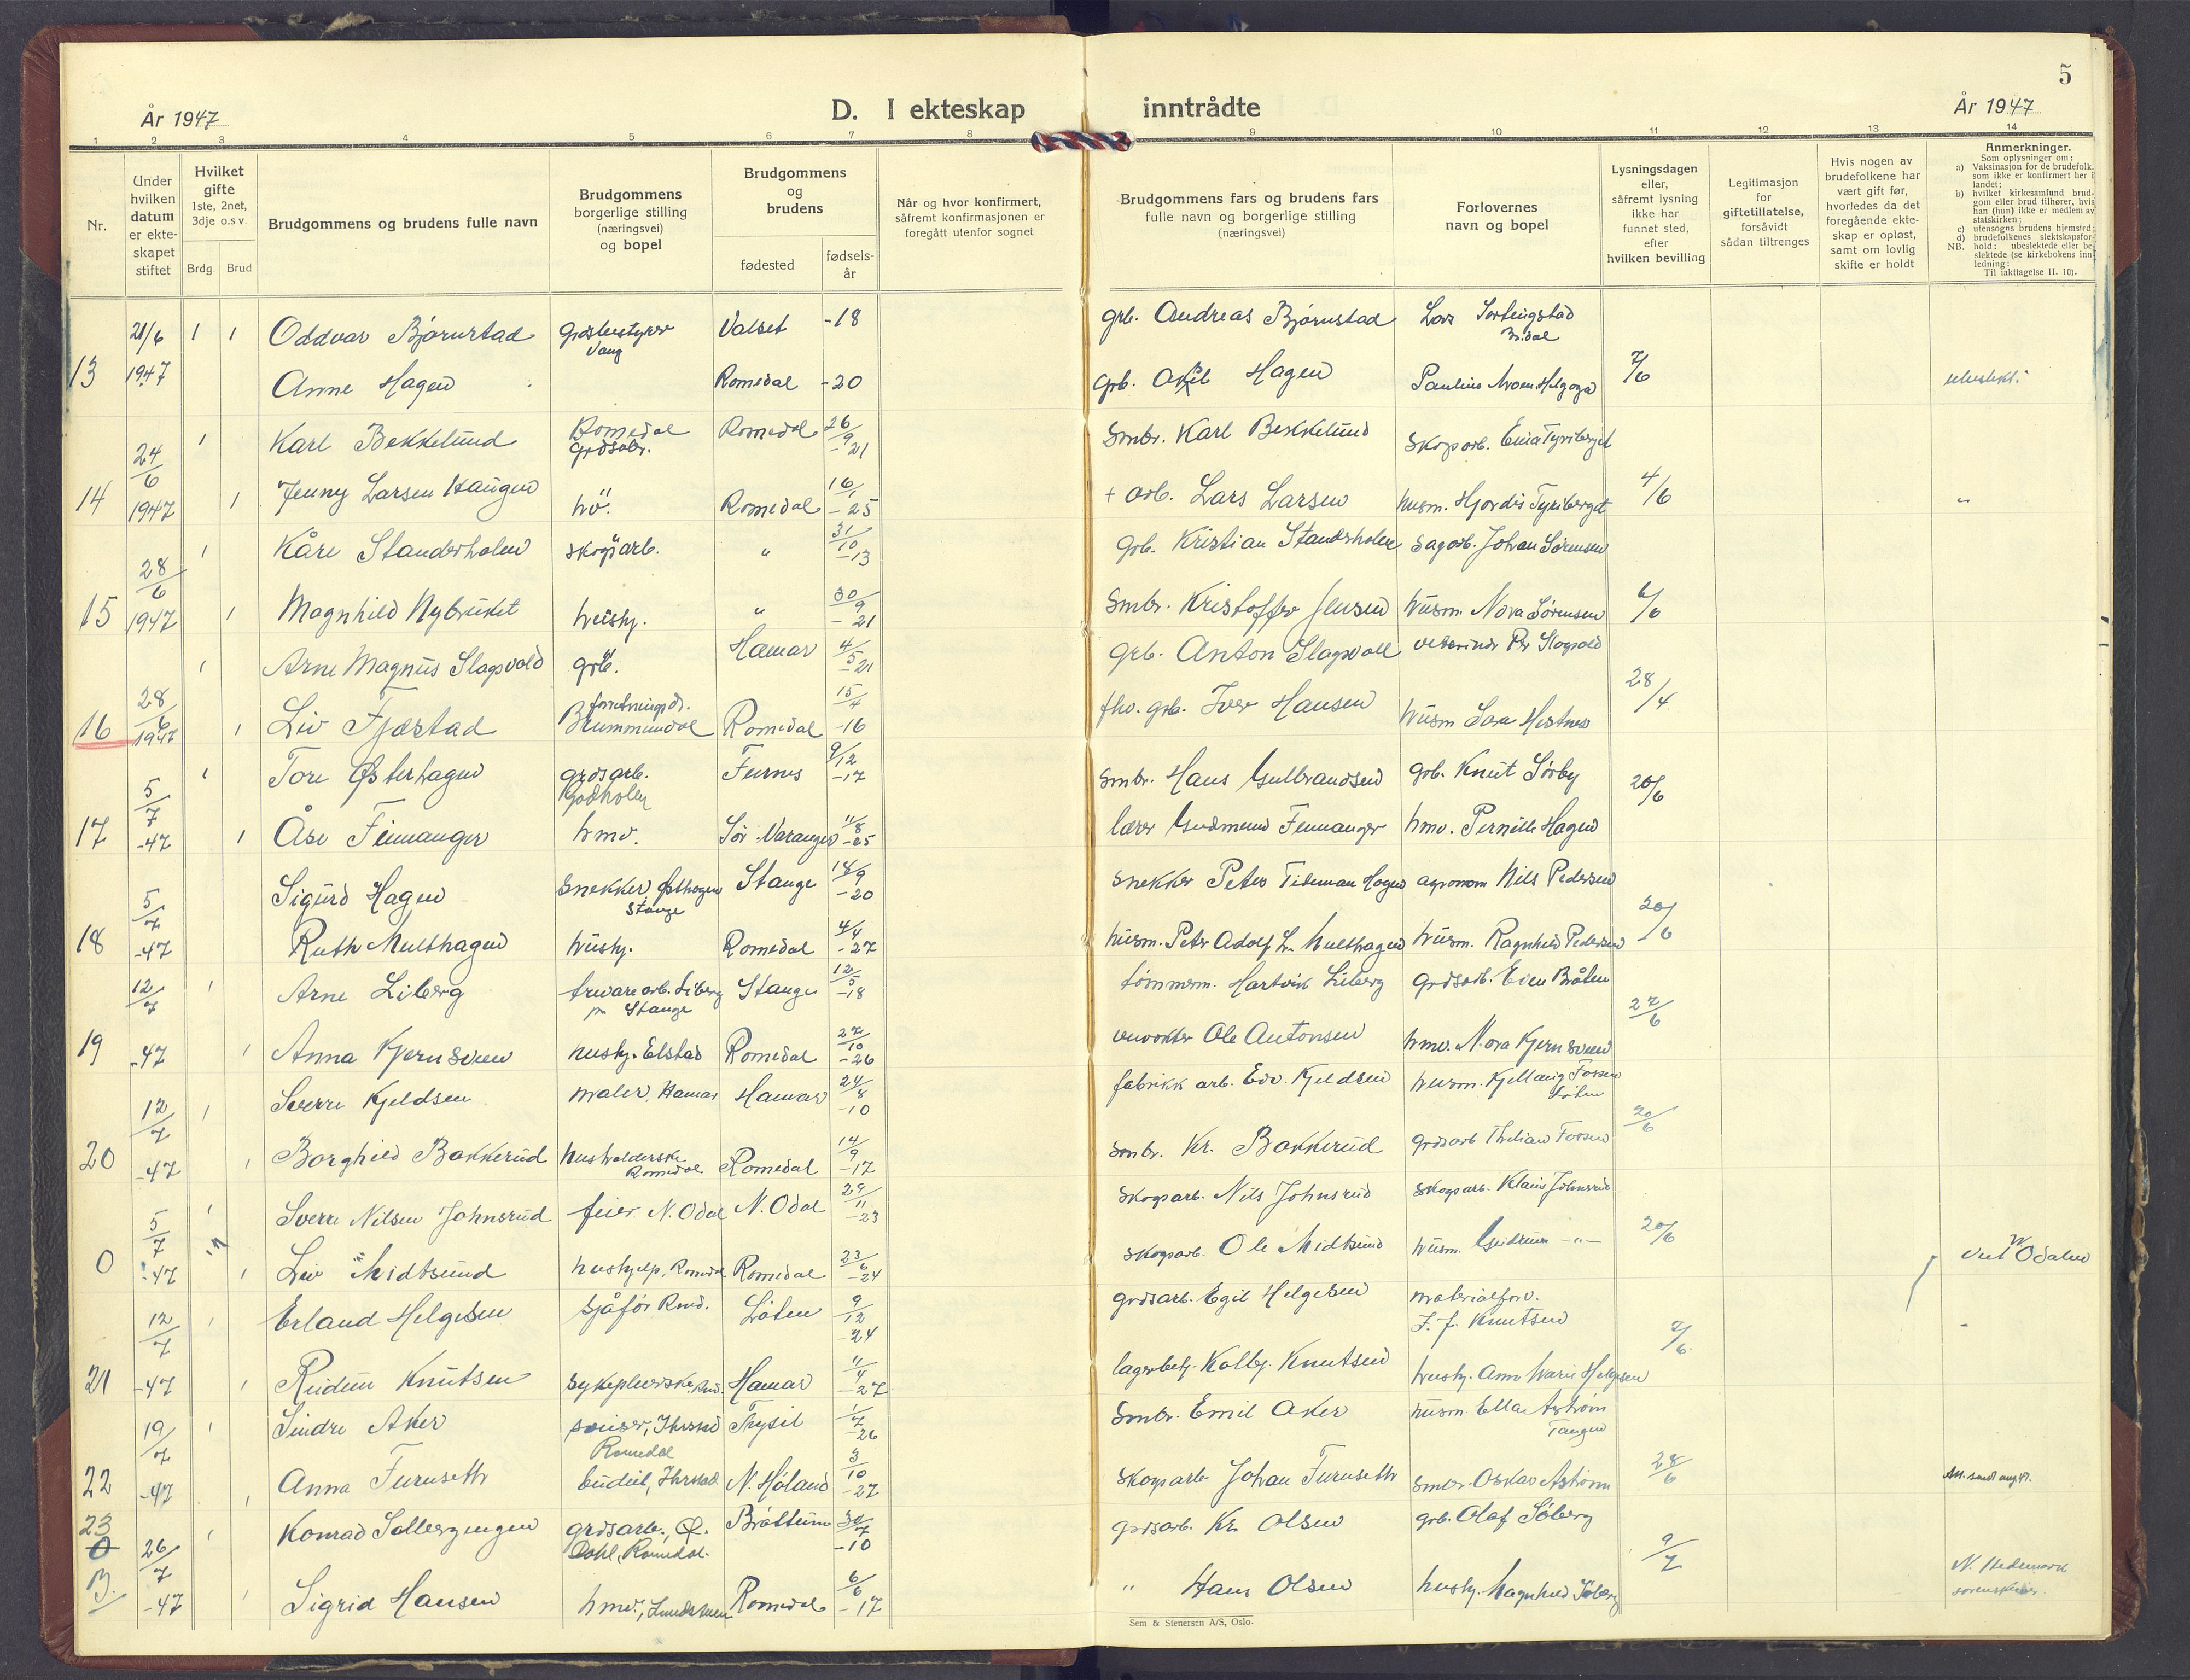 5
År 1947
D. I ekteskap inntrådte
År 1947
1 2 3 4 5 6 7 8 9 10 11 12 13 14
Nr.
Under hvilken datum er ekte-skapet stiftet
Hvilket gifte 1ste, 2net, 3dje o.s v.
Brdg Brud
Brudgommens og brudens fulle navn
Brudgommens borgerlige stilling (næringsvei) og bopel
Brudgommens og brudens
fødested
fødsels-år
Når og hvor konfirmert, såfremt konfirmasjonen er foregått utenfor sognet
Brudgommens fars og brudens fars fulle navn og borgerlige stilling (næringsvei)
Forlovernes navn og bopel
Lysningsdagen eller, såfremt lysning ikke har funnet sted, efter hvilken bevilling
Legitimasjon for giftetillatelse, forsåvidt sådan tiltrenges
Hvis nogen av brudefolkene har vært gift før, hvorledes da det foregående ekte-skap er opløst, samt om lovlig skifte er holdt
Anmerkninger.
Som oplysninger om:
a) Vaksinasjon for de brudefolk, som ikke er konfirmert her i landet;
b) hvilket kirkesamfund brud-gom eller brud tilhører, hvis han (hun) ikke er medlem av statskirken;
c) utensogns brudens hjemsted;
d) brudefolkenes slektskapsfor-hold: ubeslektede eller be-slektede (se kirkebokens inn-ledning:
NB. Til iakttagelse II. 10).
13 21/6 1947 1 1 Oddvar Bjørnstad Gårdsbestyrer Vang Valset -18 grb. Andreas Bjørnstad
Anne Hagen Romedal -20 grb. Hagen 7/6
14 24/6 1947 1 Karl Bekkelund Romedal Romedal 26/9 -21 Smbr. Karl Bekkelund Skogsarb. Tyriberget
1 Jenny Larsen Haugen Romedal 16/1 -25 + arb. Lars Larsen husm. Hjørdis Tyriberget 4/6 "
15 28/6 1947 1 Kåre Standerholen skogsarb. " 31/10 -13 grb. Kristian Standerholen Sagarb. Johan Sørensen
1 Magnhild Nybruket hushj. " 30/9 -21 Smbr. Kristoffer Jensen husm. Nora Sørensen 6/6
16 28/6 1947 1 Arne Magnus Slagsvold grb. Hamar 4/5 -21 grb. Anton Slagsvoll veterinær Per Slagsvold
1 Liv Fjæstad Brummundal Romedal 15/4 -16 fhv. grb. Iver Hansen husm 28/4
17 5/7 -47 1 Tore Østerhagen grdsarb. Godholen Furnes 9/12 -17 Smbr. Hans Gulbrandsen grb. Knut Sørby 20/6
1 Åse Finnanger hmv. Sør Varanger 11/8 -25 lærer Gudmund Finnanger hmv. Pernille Hagen
18 5/7 -47 Sigurd Hagen Snekker, Østhagen Stange Stange 14/9 -20 snekker Peter Tideman Hagen agronom Nils Pedersen
Ruth Multhagen hushj. Romedal 4/4 -27 husm. Peter Adolf L. Multhagen husm. Ragnhild Pedersen 20/6
19 12/7 -47 1 Arne Liberg trevarearb. Liberg Stange Stange 12/5 -18 tømmerm. Hartvik Liberg grdsarb. Even Bråten
1 Anna Kjernsveen hushj. Elstad Romedal 27/10 -26 Ole Antonsen hmv. Nora Kjernsveen 27/6
20 12/7 -47 1 Sverre Kjeldsen maler, Hamar Hamar 24/8 -10 fabrikk arb. Edv. Kjeldsen husm. Kjellaug Fossen Løten
1 Borghild Bakkerud husholderske Romedal Romedal 14/9 -17 Smbr. Kr. Bakkerud 20/6
0 5/7 -47 1 Sverre Nilsen Johnsrud feier N. Odal N. Odal 29/11 -23 Skogsarb. Nils Johnsrud Skogsarb. Klaus Johnsrud
1 Liv Midtsund hushjelp, Romedal Romedal 23/6 -24 Skogsarb. Ole Midtsund husm. Gudrun -"- 20/6 Viet N Odalen
21 12/7 -47 1 Erland Helgesen sjåfør Rmd. Løten 9/12 -24 grdsarb. Egil Helgesen materialforv. Knutsen -
1 Reidun Knutsen sykepleierske, Rmd. Hamar 11/4 -27 lagerbetj. Kolbj. Knutsen hushj. Anne Marie Helgesen 7/6
22 19/7 -47 1 Sindre Aker sveiser, Romedal Trysil 1/7 -26 Smbr. Emil Aker husm. Ella Åstrøm Tangen
1 Anna Furuseth budeie, N. Høland 3/10 -27 Skogsarb. Johan Furuseth Smbr. Oskar Åstrøm 28/6
23 0 26/7 -47 1 Konrad Solbergengen grdsarb., Ø. Dahl, Romedal. Brøttum 30/7 -10 grdsarb. Kr. Olsen grb. Olaf Søberg
1 Sigrid Hansen hmv., Romedal 6/6 -17 " Hans Olsen hushj. Magnhild Søberg 9/7 N. Hedemark sorenskriver.
Sem & Stenersen A/S, Oslo.